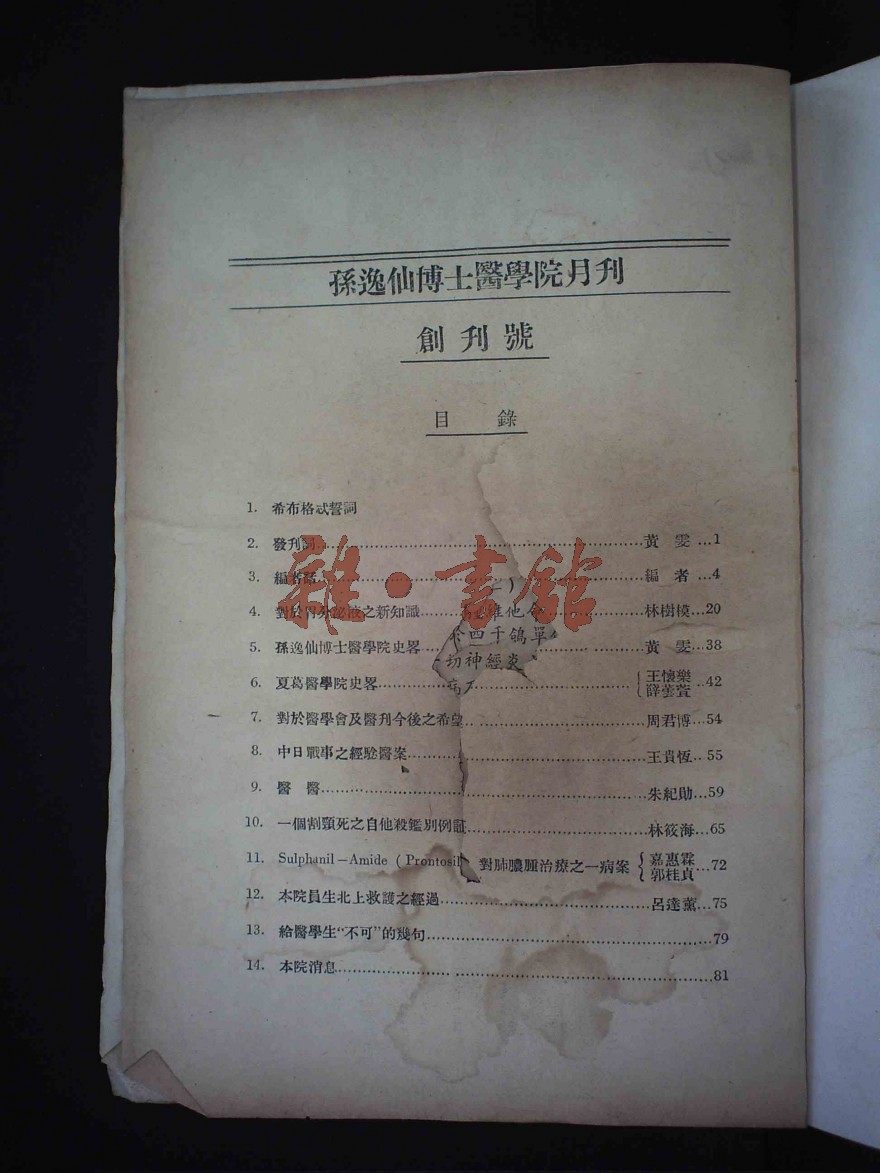 孫逸仙博士醫學院月刊
創刊號
目 錄
1. 希布格忒誓詞
2. 發刊詞 黃 雯 1
3. 編者話 編 者 4
4. 對於內分泌液之新知識 林樹模 20
5. 孫逸仙博士醫學院史畧 黃 雯 38
6. 夏葛醫學院史畧 王懷樂 薛雲萱 42
7. 對於醫學會及醫刊今後之希望 周君博 54
8. 中日戰事之經驗醫案 王貴恆 55
9. 醫 醫 朱紀勛 59
10. 一個割頸死之自他殺鑑別例證 林筱海 65
11. Sulphanil-Amide (Prontosil) 對肺膿腫治療之一病案 嘉惠霖 郭桂貞 72
12. 本院員生北上救護之經過 呂達薰 75
13. 給醫學生“不可”的幾句 79
14. 本院消息 81
二)
維他命
四千鴿單
切神經炎
雜·書館